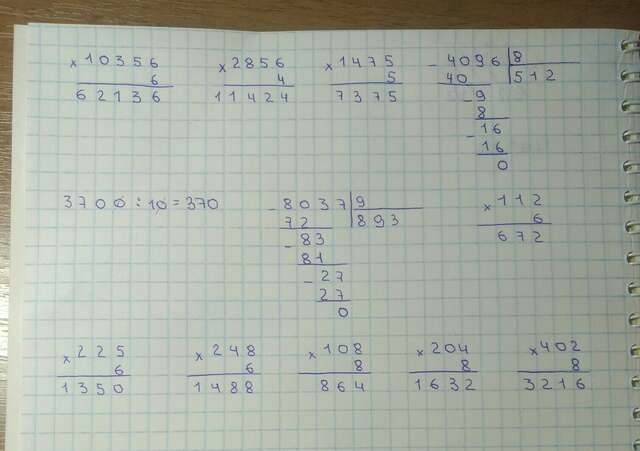 × 10356   × 2856   × 1475   - 4096 | 8
6   4   5   40   512
62136   11424   7375   - 9
8
- 16
16
0
3700 : 10 = 370   - 8037 | 9   × 112
72   893   6
- 83   672
81
- 27
27
0
× 225   × 248   × 108   × 204   × 402
6   6   8   8   8
1350   1488   864   1632   3216